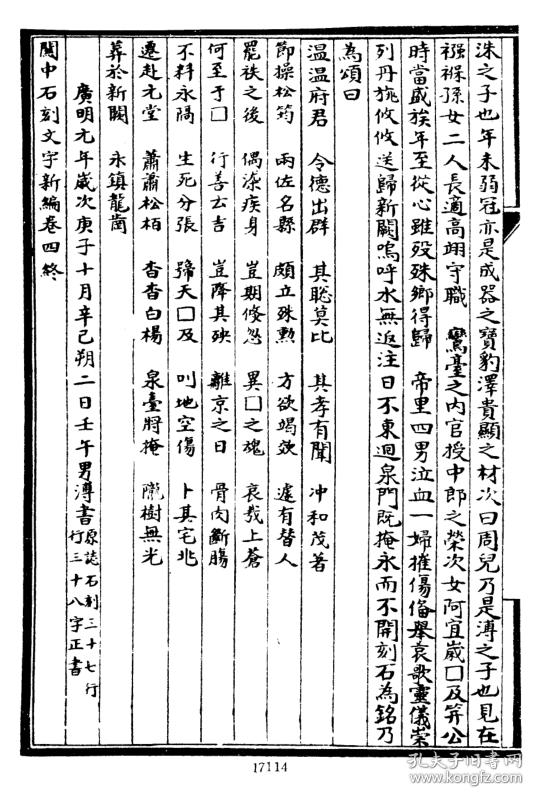 洙之子也年未弱冠亦是成器之寶豹澤貴顯之材次曰周兒乃是溥之子也見在
襁褓孫女二人長適高翊守職　鸞臺之内官授中郎之榮次女阿宜歲□及笄公
時當盛族年至從心雖殁殊鄉得歸　帝里四男泣血一婦摧傷俻舉哀歌靈儀崇
列丹旐攸攸送歸新闕嗚呼水無返注日不東迴泉門既掩永而不開刻石為銘乃
為頌曰
温温府君　令德出群　其聡莫比　其孝有聞　冲和茂著
節操松筠　兩佐名縣　頗立殊勲　方欲竭欬　遽有替人
罷秩之後　偶染疾身　豈期倏忽　異□之魂　哀哉上蒼
何至于□　行善去吉　豈降其殃　離京之日　骨肉斷腸
不料永隔　生死分張　號天□及　叫地空傷　卜其宅兆
遷赴元堂　蕭蕭松栢　杳杳白楊　泉臺將掩　隴樹無光
葬於新闕　永鎮龍崗
廣明元年歲次庚子十月辛己朔二日壬午男溥書 原誌石刻三十七行行三十八字正書
關中石刻文字新編卷四終
17114
孔夫子旧书网
www.kongfz.com